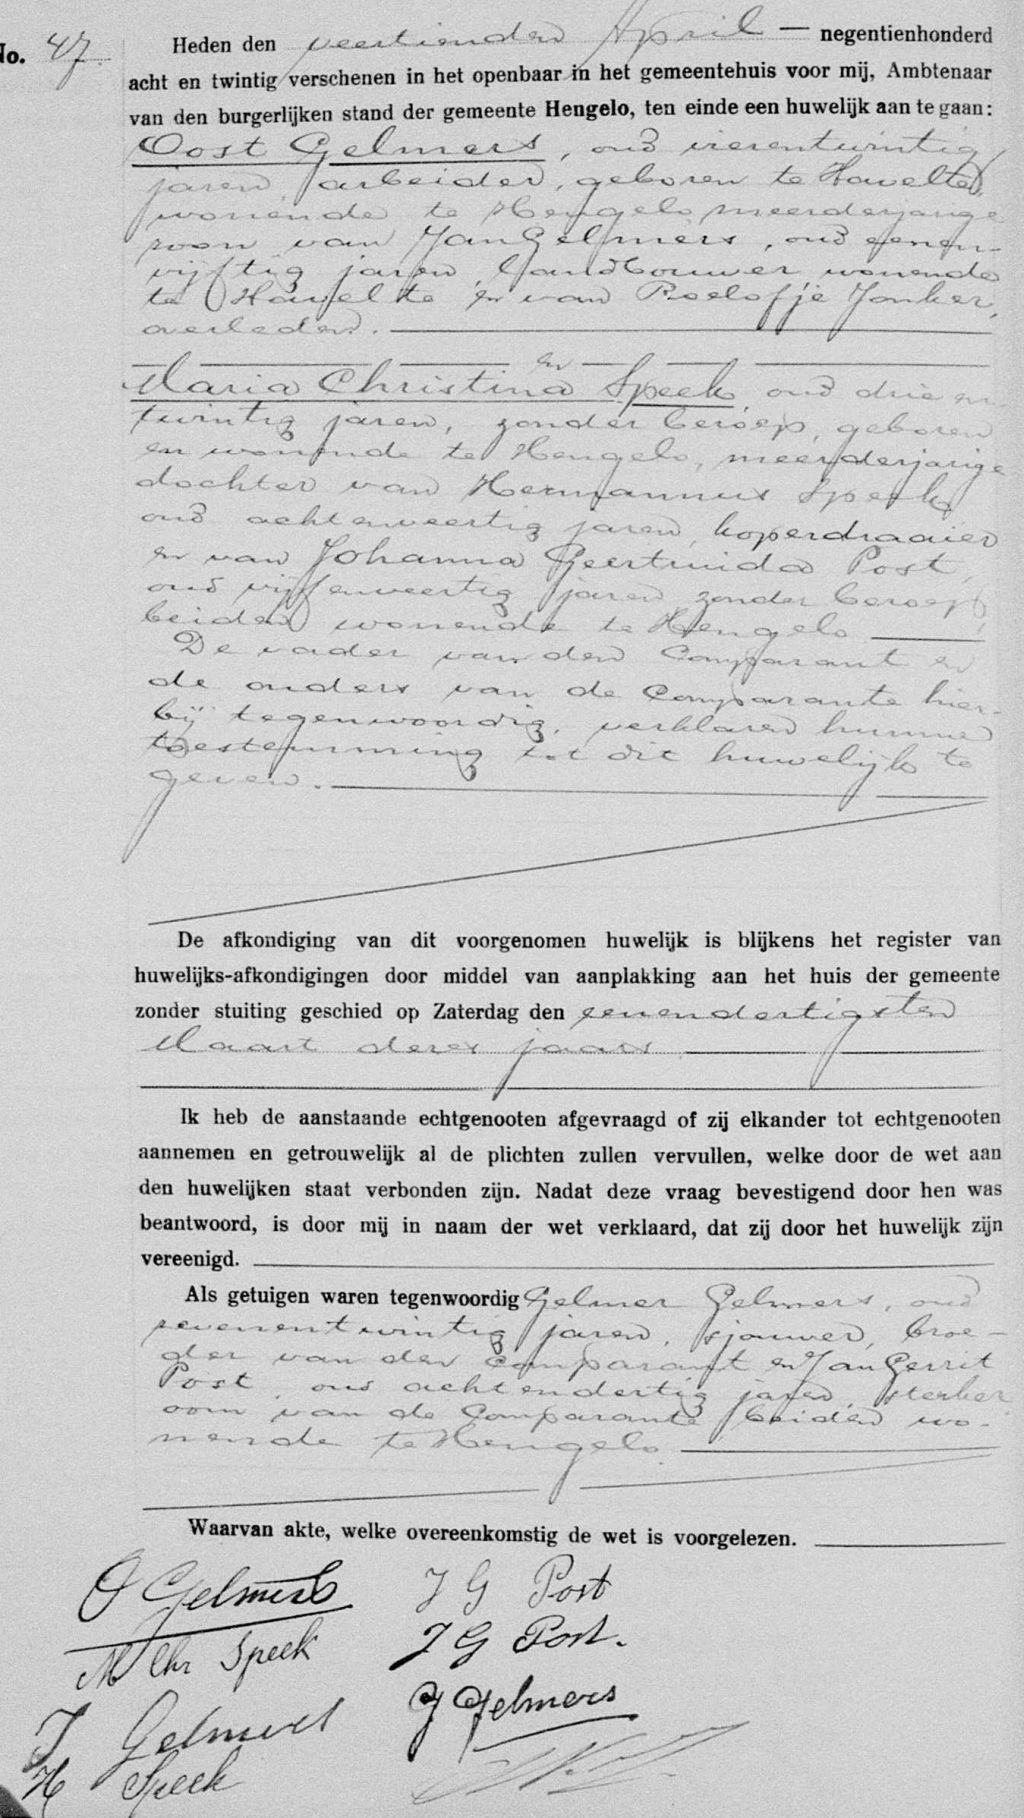 No. 47.
Heden den veertienden April — negentienhonderd
acht en twintig verschenen in het openbaar in het gemeentehuis voor mij, Ambtenaar
van den burgerlijken stand der gemeente Hengelo, ten einde een huwelijk aan te gaan:
Oost Gelmers, oud vierentwintig
jaren, arbeider, geboren te Havelte,
wonende te Hengelo, meerderjarige
zoon van Jan Gelmers, oud eenen-
vijftig jaren, landbouwer, wonende
te Havelte en van Roelofje Jonker,
overleden.
en
Maria Christina Speek, oud drie en
twintig jaren, zonder beroep, geboren
en wonende te Hengelo, meerderjarige
dochter van Hermannus Speek
oud achtenveertig jaren, koperdraaier
en van Johanna Geertruida Post,
oud vijfenveertig jaren, zonder beroep,
beiden wonende te Hengelo
De vader van den Comparant en
de ouders van de Comparante hier-
bij tegenwoordig, verklaren hunne
toestemming tot dit huwelijk te
geven.
De afkondiging van dit voorgenomen huwelijk is blijkens het register van
huwelijks-afkondigingen door middel van aanplakking aan het huis der gemeente
zonder stuiting geschied op Zaterdag den eenendertigsten
Maart dezes jaars
Ik heb de aanstaande echtgenooten afgevraagd of zij elkander tot echtgenooten
aannemen en getrouwelijk al de plichten zullen vervullen, welke door de wet aan
den huwelijken staat verbonden zijn. Nadat deze vraag bevestigend door hen was
beantwoord, is door mij in naam der wet verklaard, dat zij door het huwelijk zijn
vereenigd.
Als getuigen waren tegenwoordig Gelmer Gelmers, oud
zevenentwintig jaren, sjouwer, broe-
der van den Comparant en Jan Gerrit
Post, oud achtendertig jaren, sterker
oom van de Comparante, beiden wo-
nende te Hengelo
Waarvan akte, welke overeenkomstig de wet is voorgelezen.
O Gelmers J G Post
M Chr Speek J G Post.
J Gelmers G Gelmers
H Speek